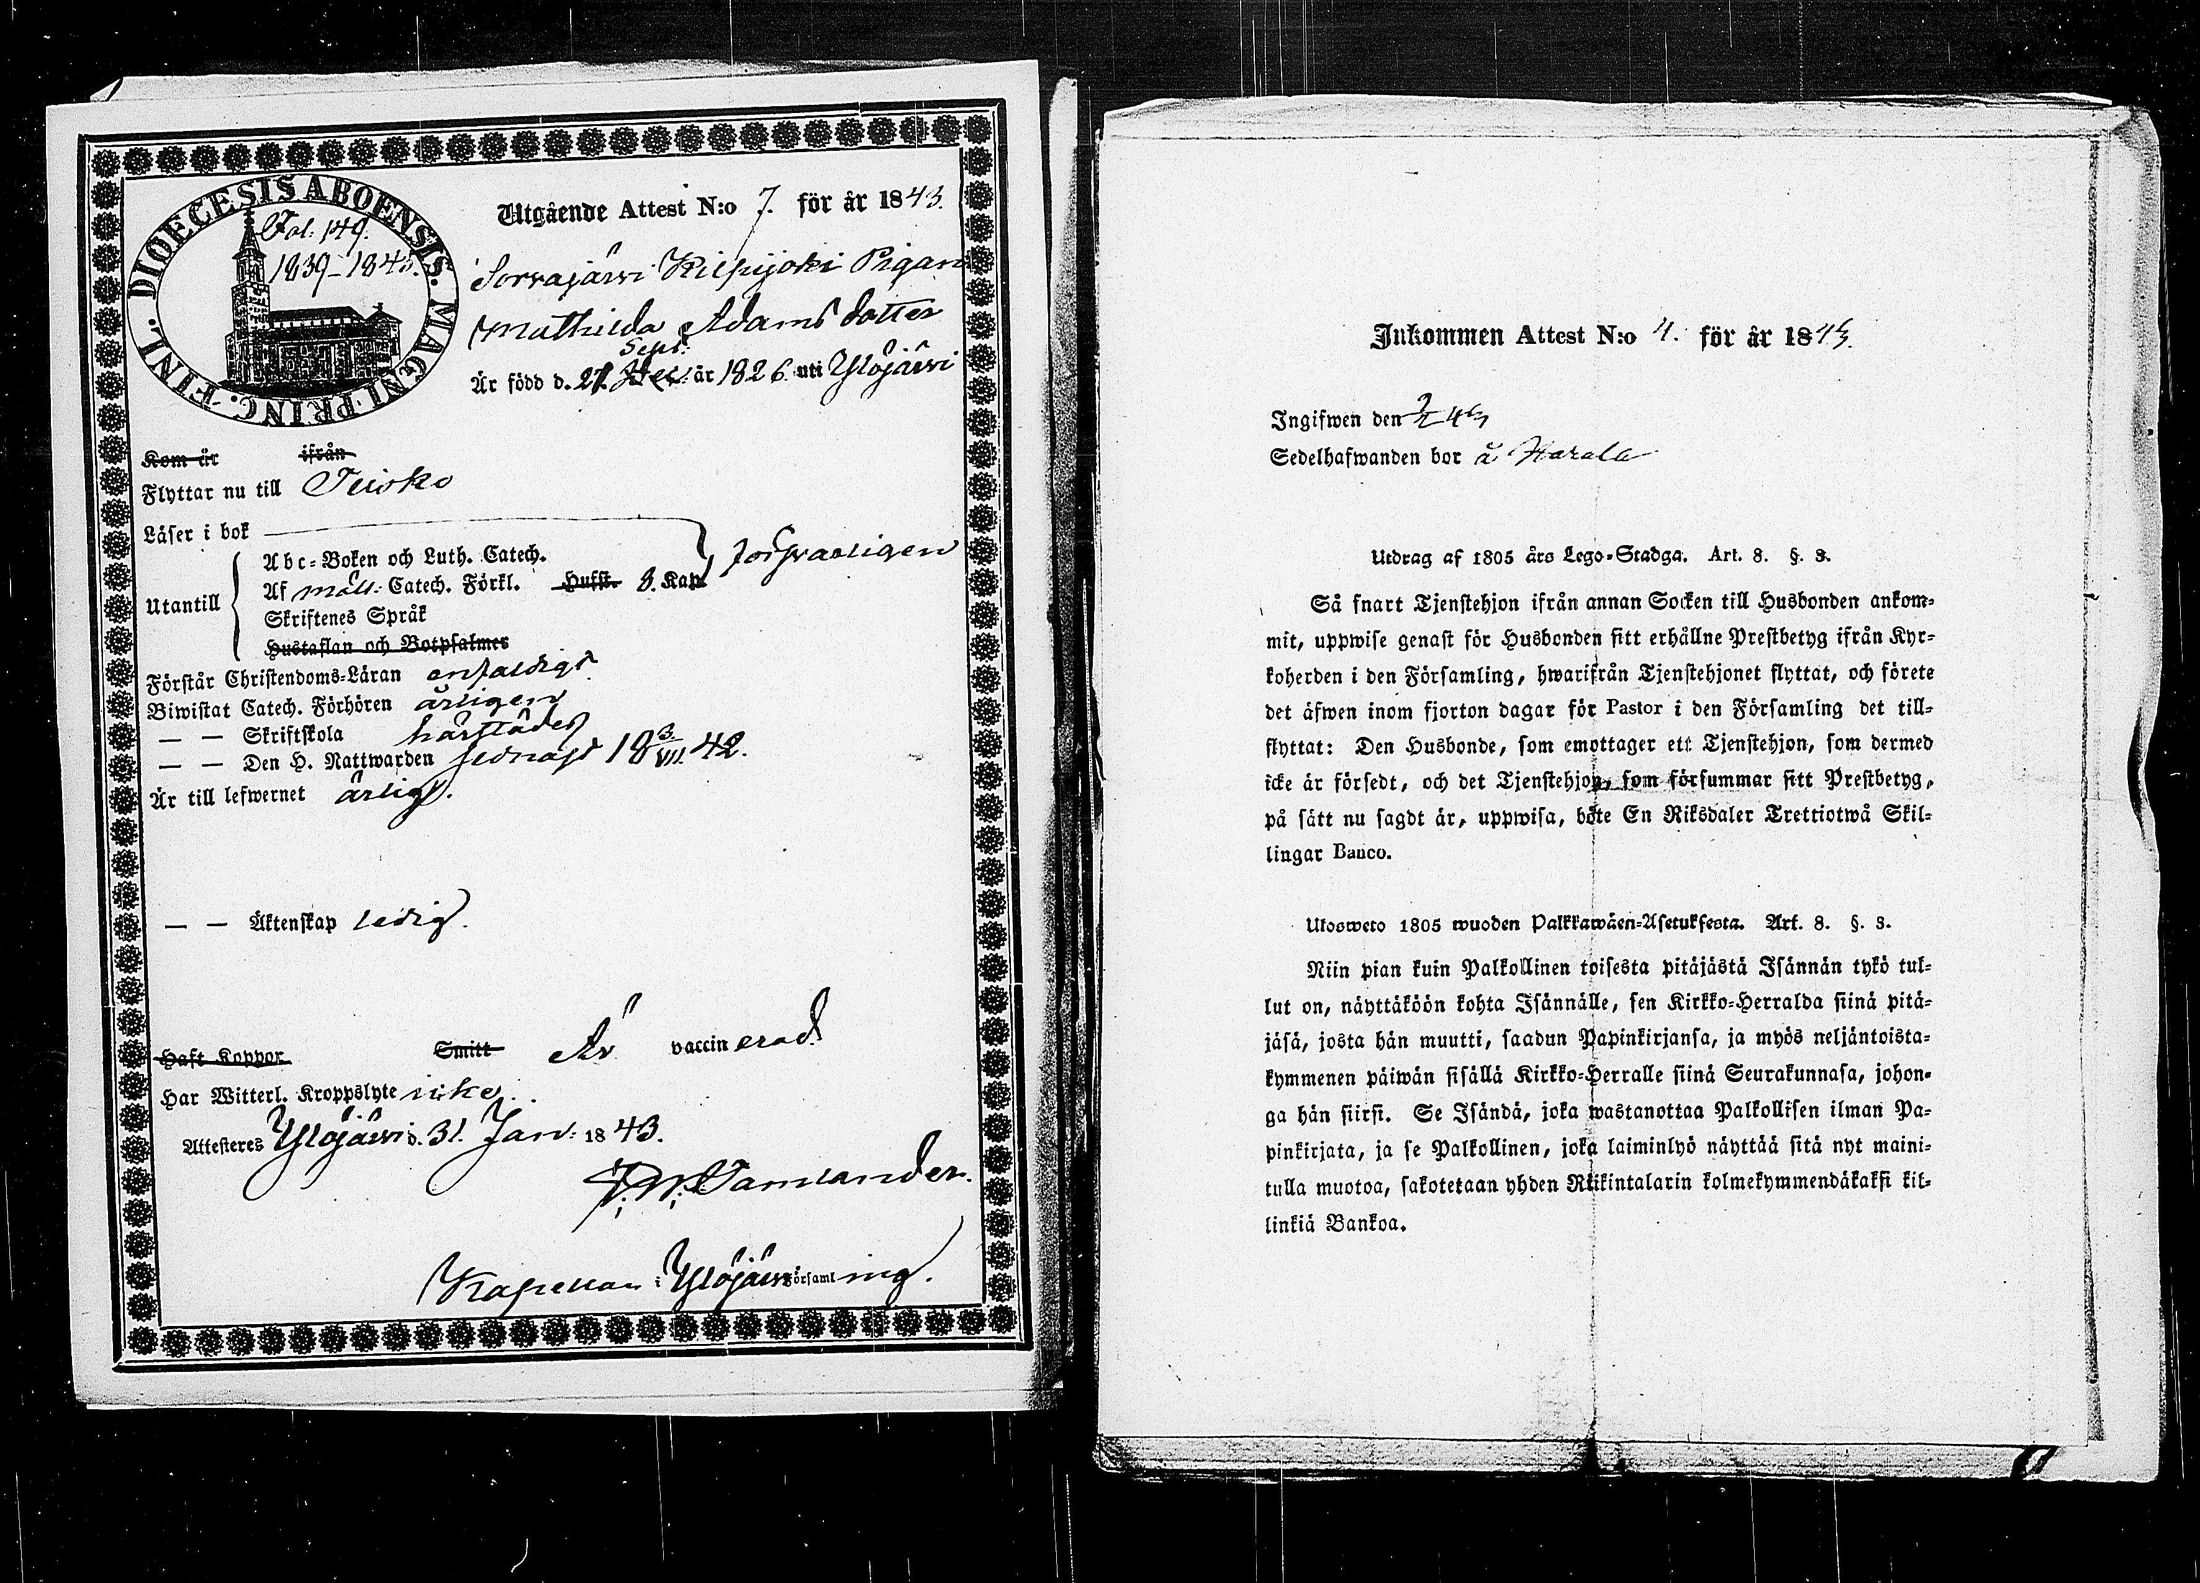 DIOECESIS ABOENSIS. MAGNI PRINC. FINL.
Fol. 149.
1839-1845.
Utgående Attest N:o 7. för år 1843.
Sorvajärvi Kilpijoki Pigan
Mathilda Adams dotter
Sept:
Är född d. 27 år 1826. uti Ylöjärvi
Kom år ifrån
Flyttar nu till Teisko
Läser i bok
försvarligen
Utantill
Abc-Boken och Luth. Catech.
Af möll: Catech. Förkl. Hufst. 8. Kap.
Skriftenes Språk
Hustaflan och Botpsalmer
Förstår Christendoms-Läran enfaldigt
Biwistat Catech. Förhören årligen
— — Skriftskola härstädes
— — Den H. Nattwarden sednast 18 3/VII 42.
Är till lefwernet ärlig.
— — Äktenskap ledig.
Haft Koppor Smitt Är vaccinerad.
Har Witterl. Kroppslyte icke.
Attesteres Ylöjärvi d. 31. Jan: 1843.
Kapellan i Ylöjärvi församling.
Inkommen Attest N:o 4. för år 1843.
Ingifwen den 2/2 43
Sedelhafwanden bor å Harala
Utdrag af 1805 års Lego-Stadga. Art. 8. §. 3.
Så snart Tjenstehjon ifrån annan Socken till Husbonden ankom-
mit, uppwise genast för Husbonden sitt erhållne Prestbetyg ifrån Kyr-
koherden i den Församling, hwarifrån Tjenstehjonet flyttat, och förete
det äfwen inom fjorton dagar för Pastor i den Församling det till-
flyttat: Den Husbonde, som emottager ett Tjenstehjon, som dermed
icke är försedt, och det Tjenstehjon, som försummar sitt Prestbetyg,
på sätt nu sagdt är, uppwisa, böte En Riksdaler Trettiotwå Skil-
lingar Banco.
Ulosweto 1805 wuoden Palkkawäen-Asetuksesta. Art. 8. §. 3.
Niin pian kuin Palkollinen toisesta pitäjästä Isännän tykö tul-
lut on, näyttäköön kohta Isännälle, sen Kirkko-Herralda siinä pitä-
jäsä, josta hän muutti, saadun Papinkirjansa, ja myös neljäntoista-
kymmenen päiwän sisällä Kirkko-Herralle siinä Seurakunnasa, johon-
ga hän siirsi. Se Isändä, joka wastanottaa Palkollisen ilman Pa-
pinkirjata, ja se Palkollinen, joka laiminlyö näyttää sitä nyt maini-
tulla muotoa, sakotetaan yhden Riikintalarin kolmekymmendäkaksi kil-
linkiä Bankoa.